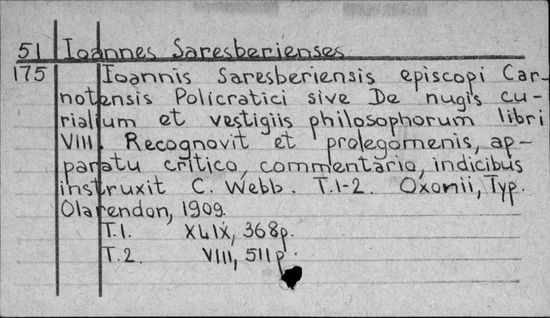 51 Ioannes Saresberienses
175 Ioannis Saresberiensis episcopi Car-
notensis Policratici sive De nugis cu-
rialium et vestigiis philosophorum libri
VIII. Recognovit et prolegomenis, ap-
paratu critico, commentario, indicibus
instruxit C. Webb. T.1-2. Oxonii, Typ.
Olarendon, 1909.
T.1. XLIX, 368p.
T.2. VIII, 511p.